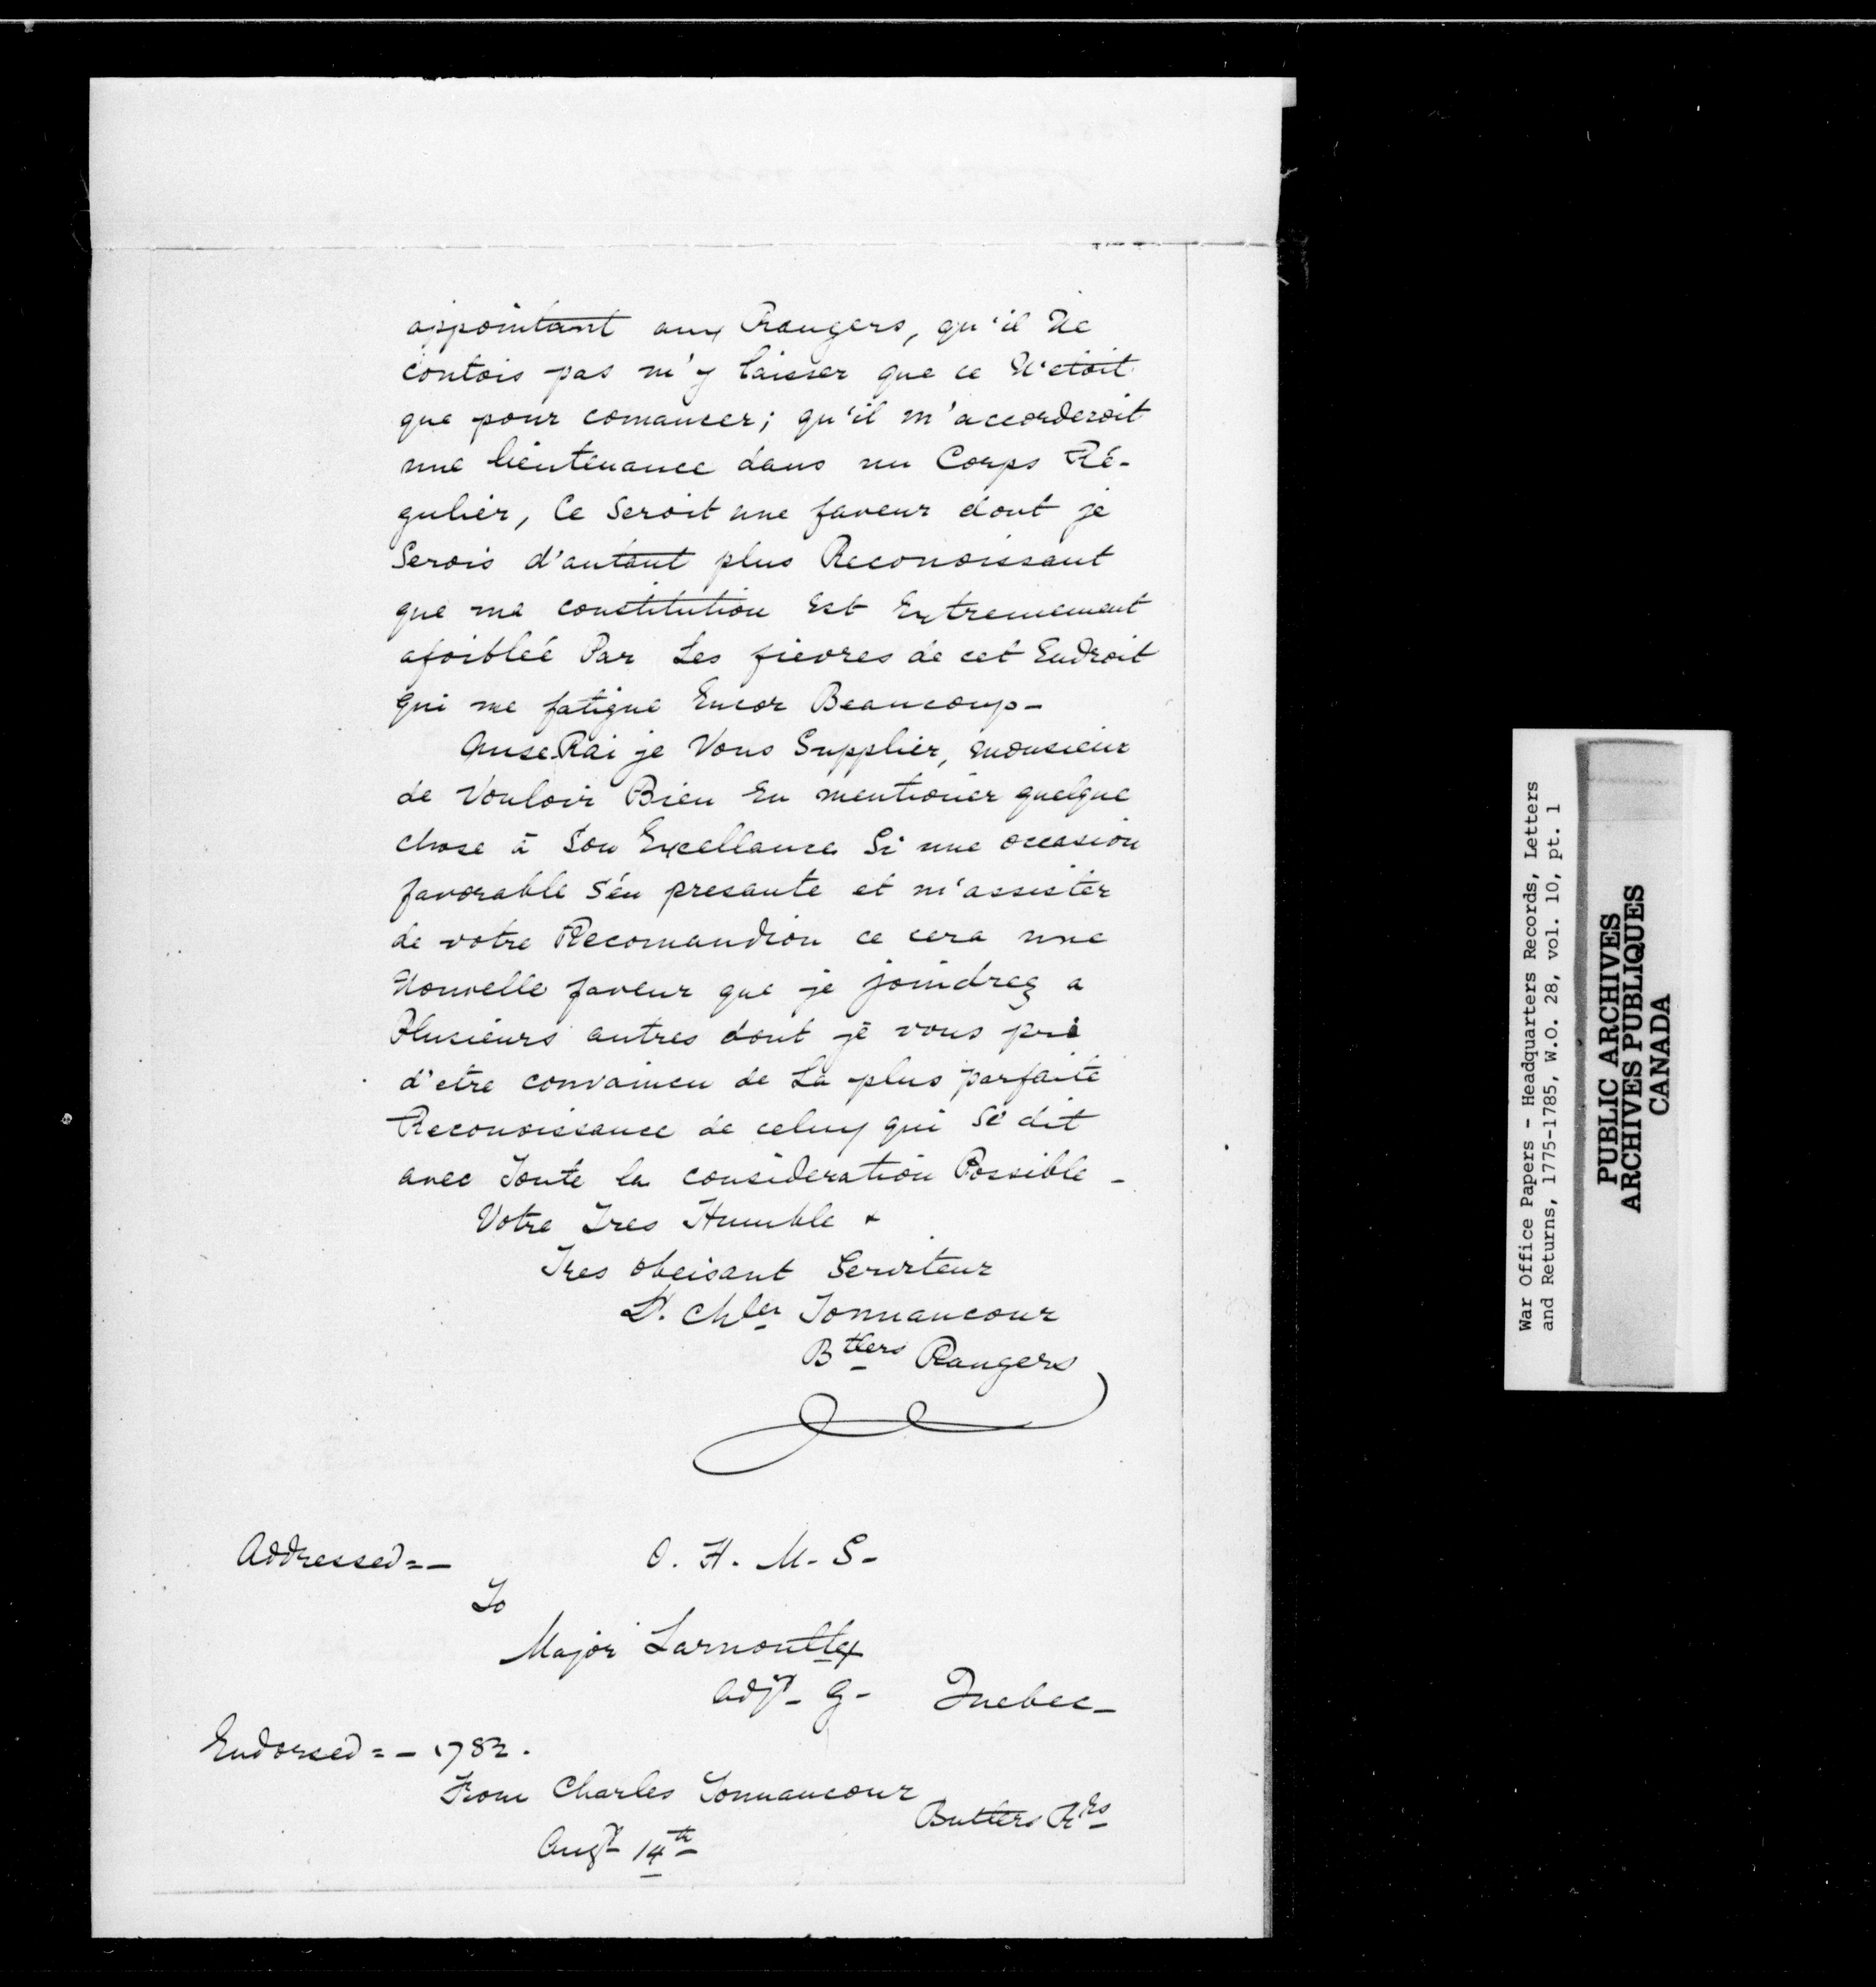 appointant aux Rangers, qu'il Ne
contois pas m'y laisser que ce N'etoit
que pour comancer; qu'il m'accorderoit
une lieutenance dans un Corps Ré-
gulier, Ce Seroit une faveur dont je
Serois d'autant plus Reconoissant
que ma constitution Est Extremement
afoiblée Par Les fievres de cet Endroit
qui me fatigue Encor Beaucoup-
AuseRai je Vous Supplier, monsieur
de Vouloir Bien En mentioner quelque
chose à Son Excellance Si une occasion
favorable s'en presante et m'assister
de votre Recomandion ce cera une
Nouvelle faveur que je joindrez a
Plusieurs autres dont je vous prie
d'etre convaincu de La plus parfaite
Reconoissance de celuy qui Se dit
avec Toute la consideration Possible -
Votre Tres Humble &
Tres obeisant Serviteur
Lt. Chles Tonnancour
Btlers Rangers
Addressed=- O. H. M. S-
To
Major Lernoult
Adjt- G- Quebec-
Endorsed=- 1782.
From Charles Tonnancour
Butlers Rrs
Augt 14th
War Office Papers - Headquarters Records, Letters
and Returns, 1775-1785, W.O. 28, vol. 10, pt. 1
PUBLIC ARCHIVES
ARCHIVES PUBLIQUES
CANADA